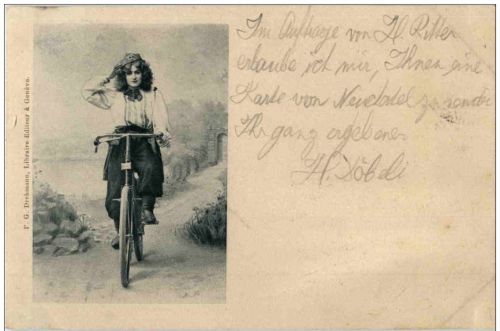 Im Auftrage von H. Ritter
erlaube ich mir, Ihnen eine
Karte von Neuchatel zu senden
Ihr ganz ergebener
H.
P. G. Drehmann, Libraire-Editeur à Genève.